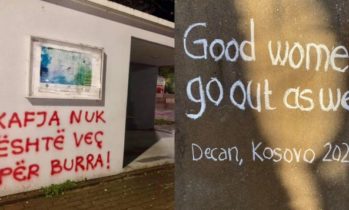 KAFJA NUK
ËSHTË VEÇ
PËR BURRA!
Good wome
go out as we
Decan, Kosovo 202